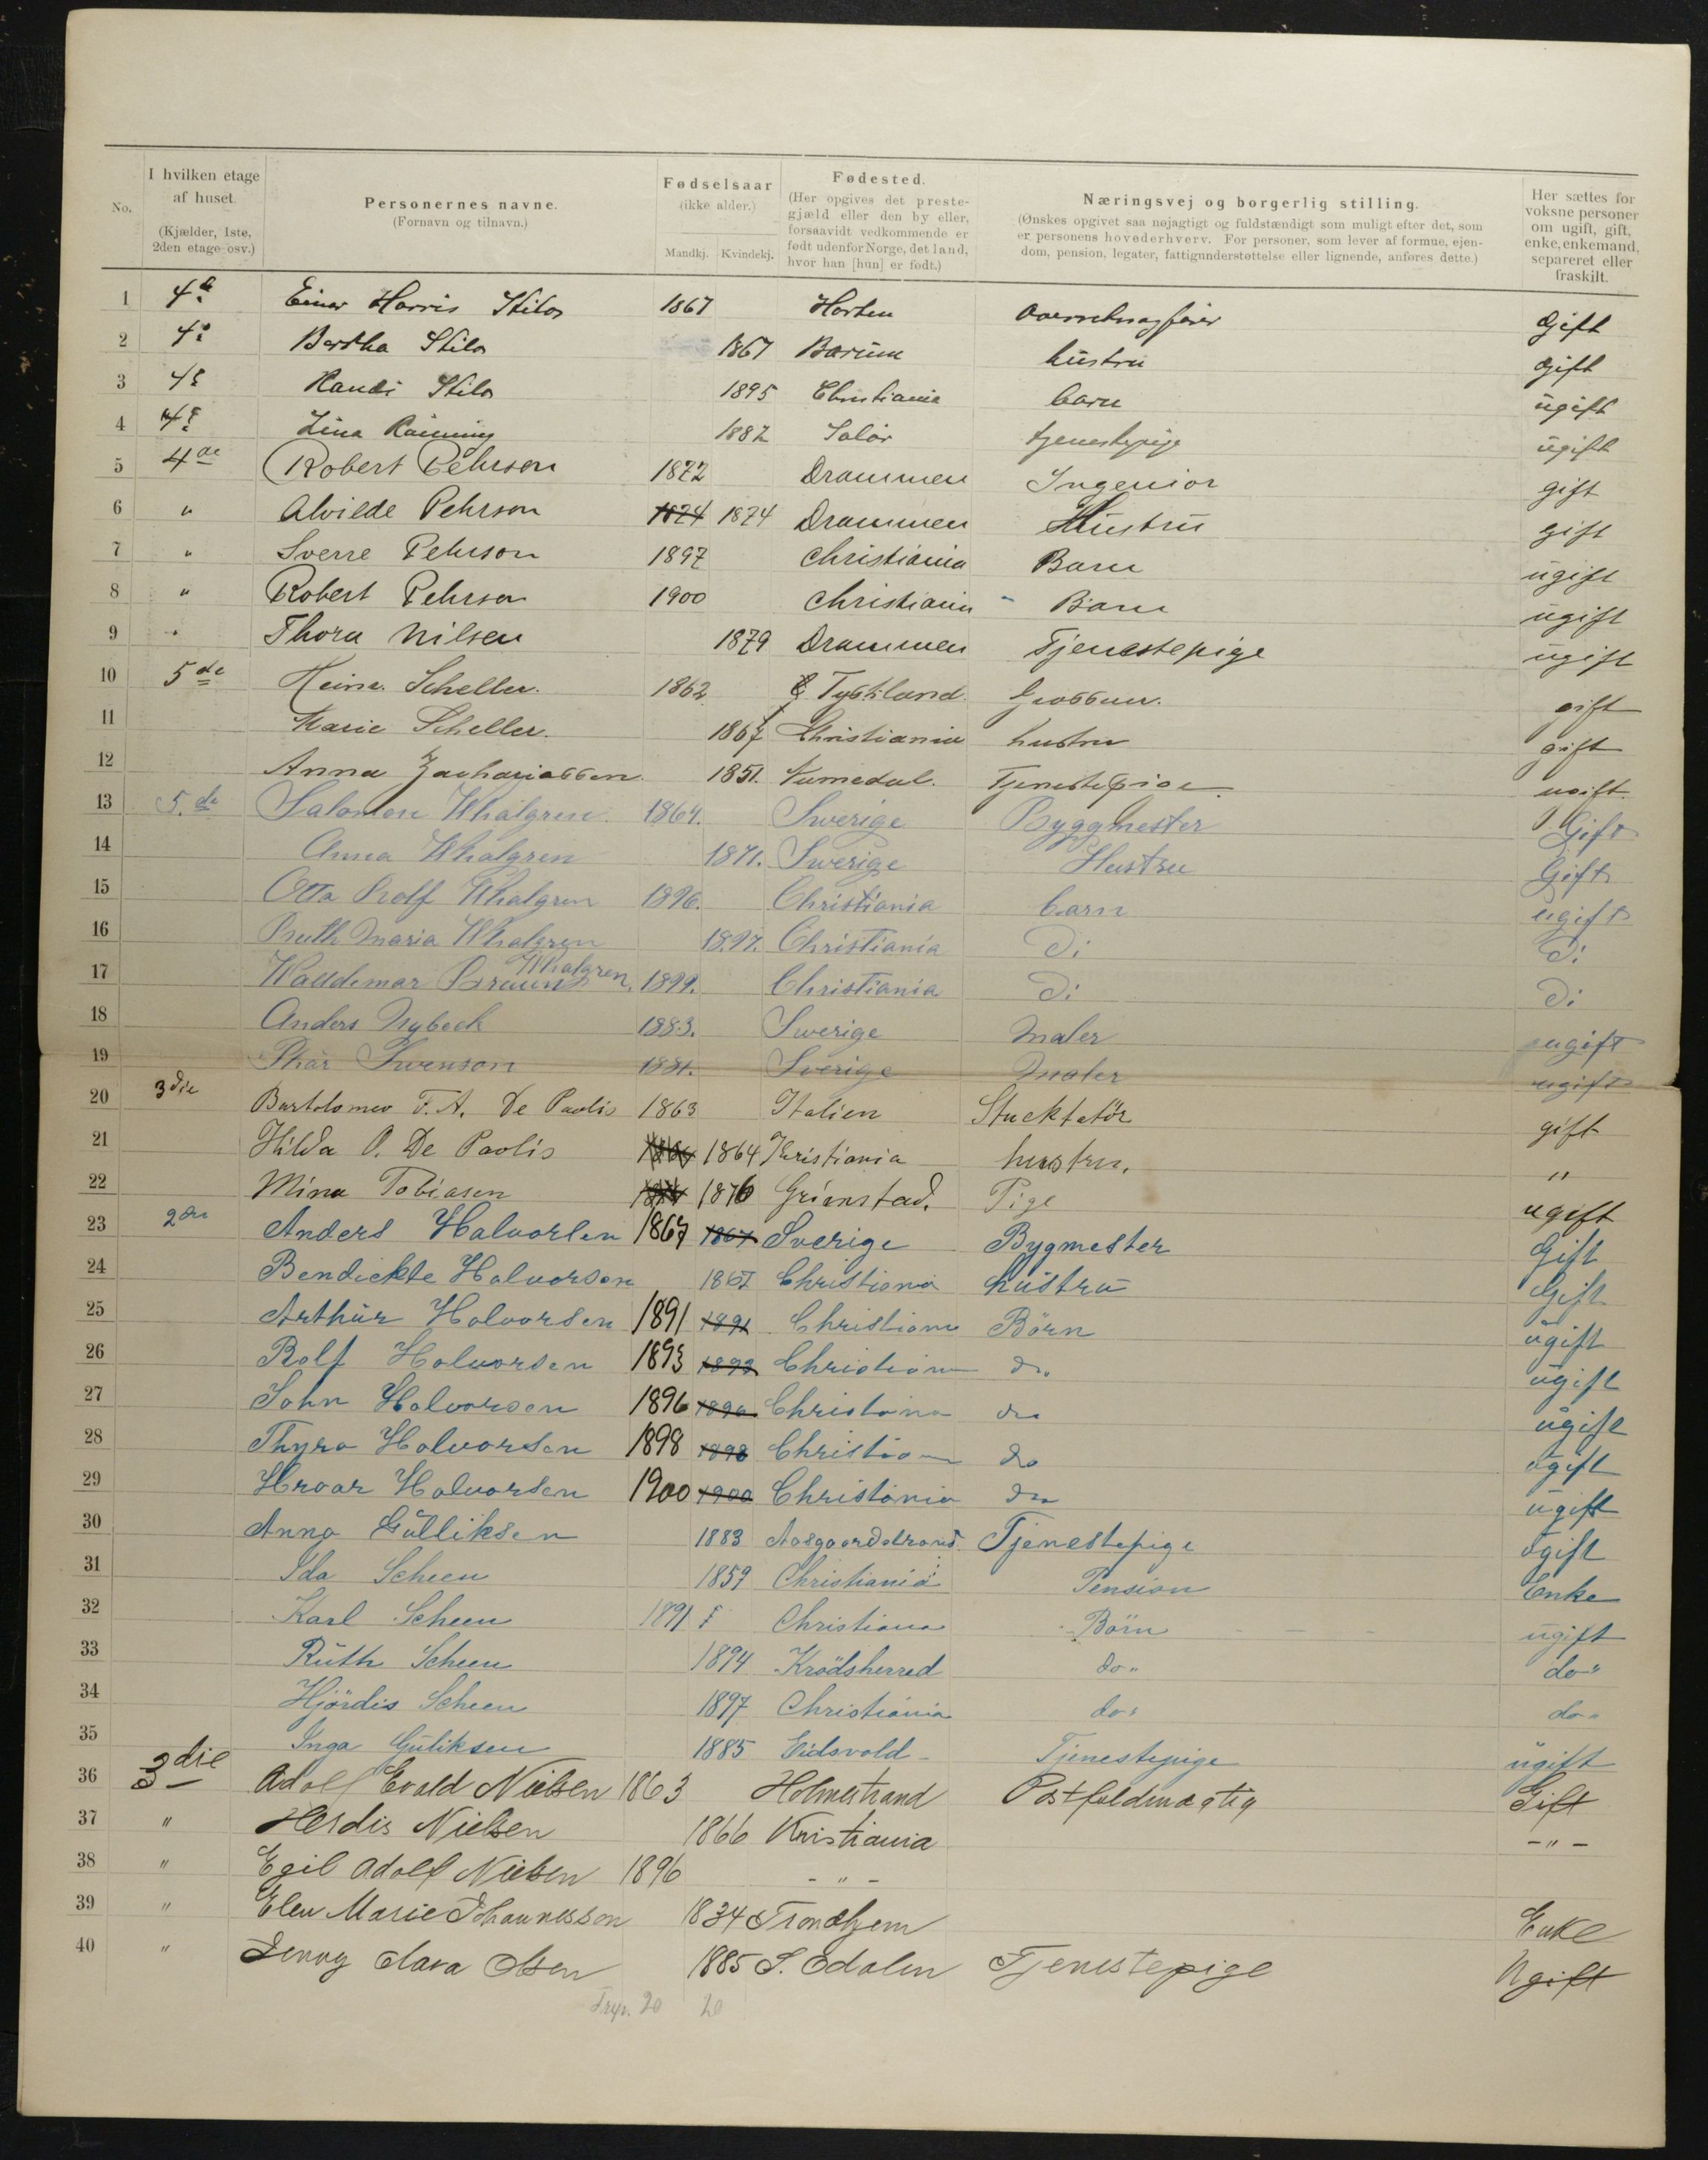 No.
I hvilken etage af huset. (Kjælder, 1ste, 2den etage osv.)
Personernes navne. (Fornavn og tilnavn.)
Fødselsaar (ikke alder.) Mandkj. Kvindekj.
Fødested. (Her opgives det prestegjæld eller den by eller, forsaavidt vedkommende er født udenfor Norge, det land, hvor han [hun] er født.)
Næringsvej og borgerlig stilling. (Ønskes opgivet saa nøjagtigt og fuldstændigt som muligt efter det, som er personens hovederhverv. For personer, som lever af formue, ejendom, pension, legater, fattigunderstøttelse eller lignende, anføres dette.)
Her sættes for voksne personer om ugift, gift, enke, enkemand, separeret eller fraskilt.
1 Einar Harris 1867 Horten Gift
2 Bertha 1867 Barüm hüstru gift
3 Randi 1895 Christiania barn ügift
4 Lina 1882 Solör tjenestepige ügift
5 4de Robert Pehrson 1872 Drammen Ingeniör gift
6 " Alvilde Pehrson 1874 1874 Drammen Hüstrü gift
7 " Sverre Pehrson 1897 Christiania Barn ügift
8 " Robert Pehrson 1900 Christiania Barn ügift
9 " Thora Nilsen 1879 Drammen Tjenestepige ügift
10 5de Heinr. Scheller. 1862 Tyskland. Grosserer. gift
11 Marie Scheller. 1867 Christiania hustru gift
12 Anna Zachariassen 1851. Numedal. Tjenestepige. ugift.
13 5.de Salomon Whalgren. 1864. Swerige Byggmester Gift
14 Anna Whalgren 1871. Swerige Hustru Gift
15 Otto Rolf Whalgren 1896. Christiania barn ugift
16 Ruth Maria Whalgren 1897. Christiania Di Di
17 Walldemar Whalgren. 1899. Christiania Di Di
18 Anders Nybeck 1883. Swerige Maler ugift
19 Swenson 1881. Sverige Maler ugift
20 3die Bartolomeo F. A. De Paolis 1863 Italien Stucktatör gift
21 Hilda O. De Paolis 1864 Kristiania hustru. "
22 Mina Tobiasen 1876 Grimstad. Pige ugift
23 2den Anders Halvorsen 1867 1867 Sverige Bygmester Gift
24 Bendickte Halvorsen 1867 Christiania hüstrü Gift
25 Arthür Halvorsen 1891 1891 Christiania Börn ügift
26 Rolf Halvorsen 1893 1893 Christiania do ügift
27 John Halvorsen 1896 1896 Christiania do ügift
28 Thyra Halvorsen 1898 1898 Christiania do ügift
29 Hroar Halvorsen 1900 1900 Christiania do ügift
30 Anna Gülliksen 1883 Aasgaardstrand. Tjenestepige ügift
31 Ida Scheen 1859 Christiania Pension Enke
32 Karl Scheen 1891 Christiania Börn ügift
33 Rüth Scheen 1894 Krödsherred do " do "
34 Hjördis Scheen 1897 Christiania do " do "
35 Inga Güliksen 1885 Eidsvold Tjenestepige ügift
36 3die Adolf Evald Nielsen 1863 Holmestrand Postfuldmægtig Gift
37 " Herdis Nielsen 1866 Kristiania - " -
38 " Egil Adolf Nielsen 1896 - " -
39 " Elen Marie Johannesson 1834 Trondhjem Enke
40 " Jenny Clara Olsen 1885 S. Odalen Tjenestepige Ugift
20 20